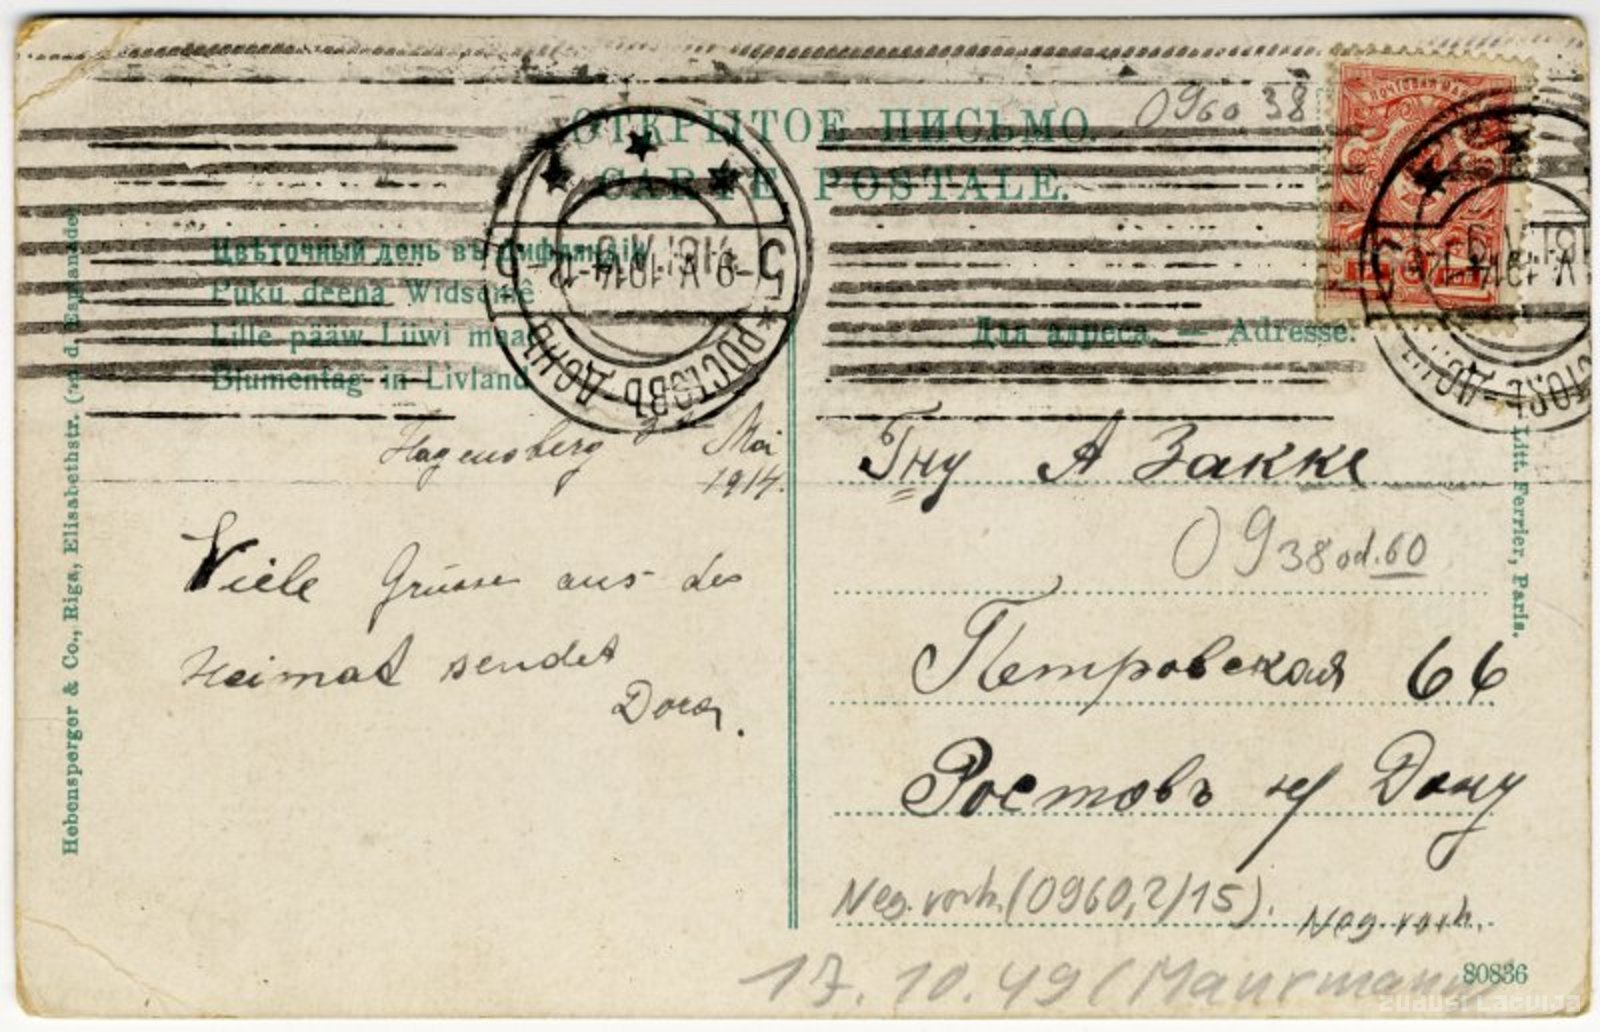 ОТКРЫТОЕ ПИСЬМО.
CARTE POSTALE.
0960 38
ПОЧТОВАЯ МАРКА
Цвѣточный день въ Лифляндіи
Puku deena Widsemê
Lille pääw Liiwi maal
Blumentag in Livland
Для адреса. — Adresse.
5 -9.V.1914-12- 5
*РОСТОВЪ-ДОНЪ*
Hagensberg 3ten Mai
1914.
Viele Grüsse aus der
Heimat sendet
Dora.
Гну А Закке
0938 od. 60
Петровская 66
Ростовъ н/ Дону
Neg. vorh. (0960,2/15). Neg. vorh.
17.10.49 (Maurmann
80836
Hebensperger & Co., Riga, Elisabethstr. d. Esplanade
Litt. Ferrier, Paris.
zudusi Latvija